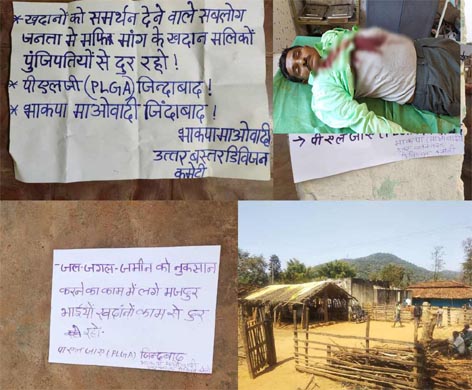 * खदानों को समर्थन देने वाले सबलोग
जनता से माफि मांग के खदान मलिकों
पुंजिपतियों से दुर रहो!
* पीएलजी (PLGA) जिन्दाबाद!
* भाकपा माओवादी जिंदाबाद!
भाकपा माओवादी
उत्तर बस्तर डिविजन
कमेटी
-जल-जगल-जमीन को नुकसान
करने का काम में लगे मजदुर
भाईयों खदानों काम से दुर
रहो-
(PLGA) जिन्दाबाद